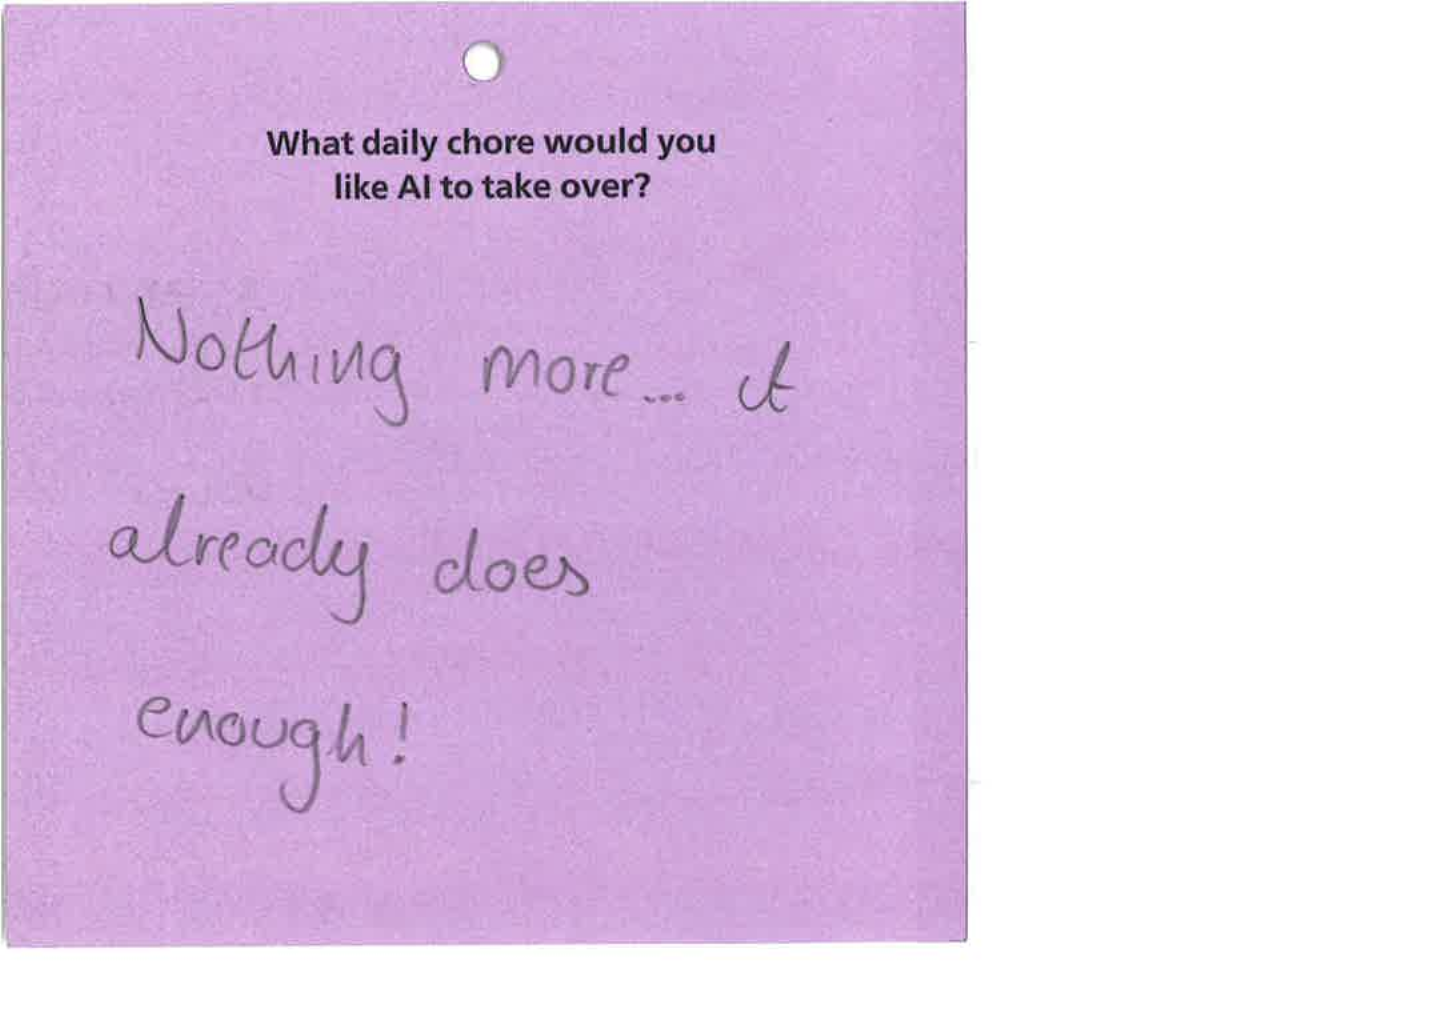 What daily chore would you
like AI to take over?
Nothing more... it
already does
enough!